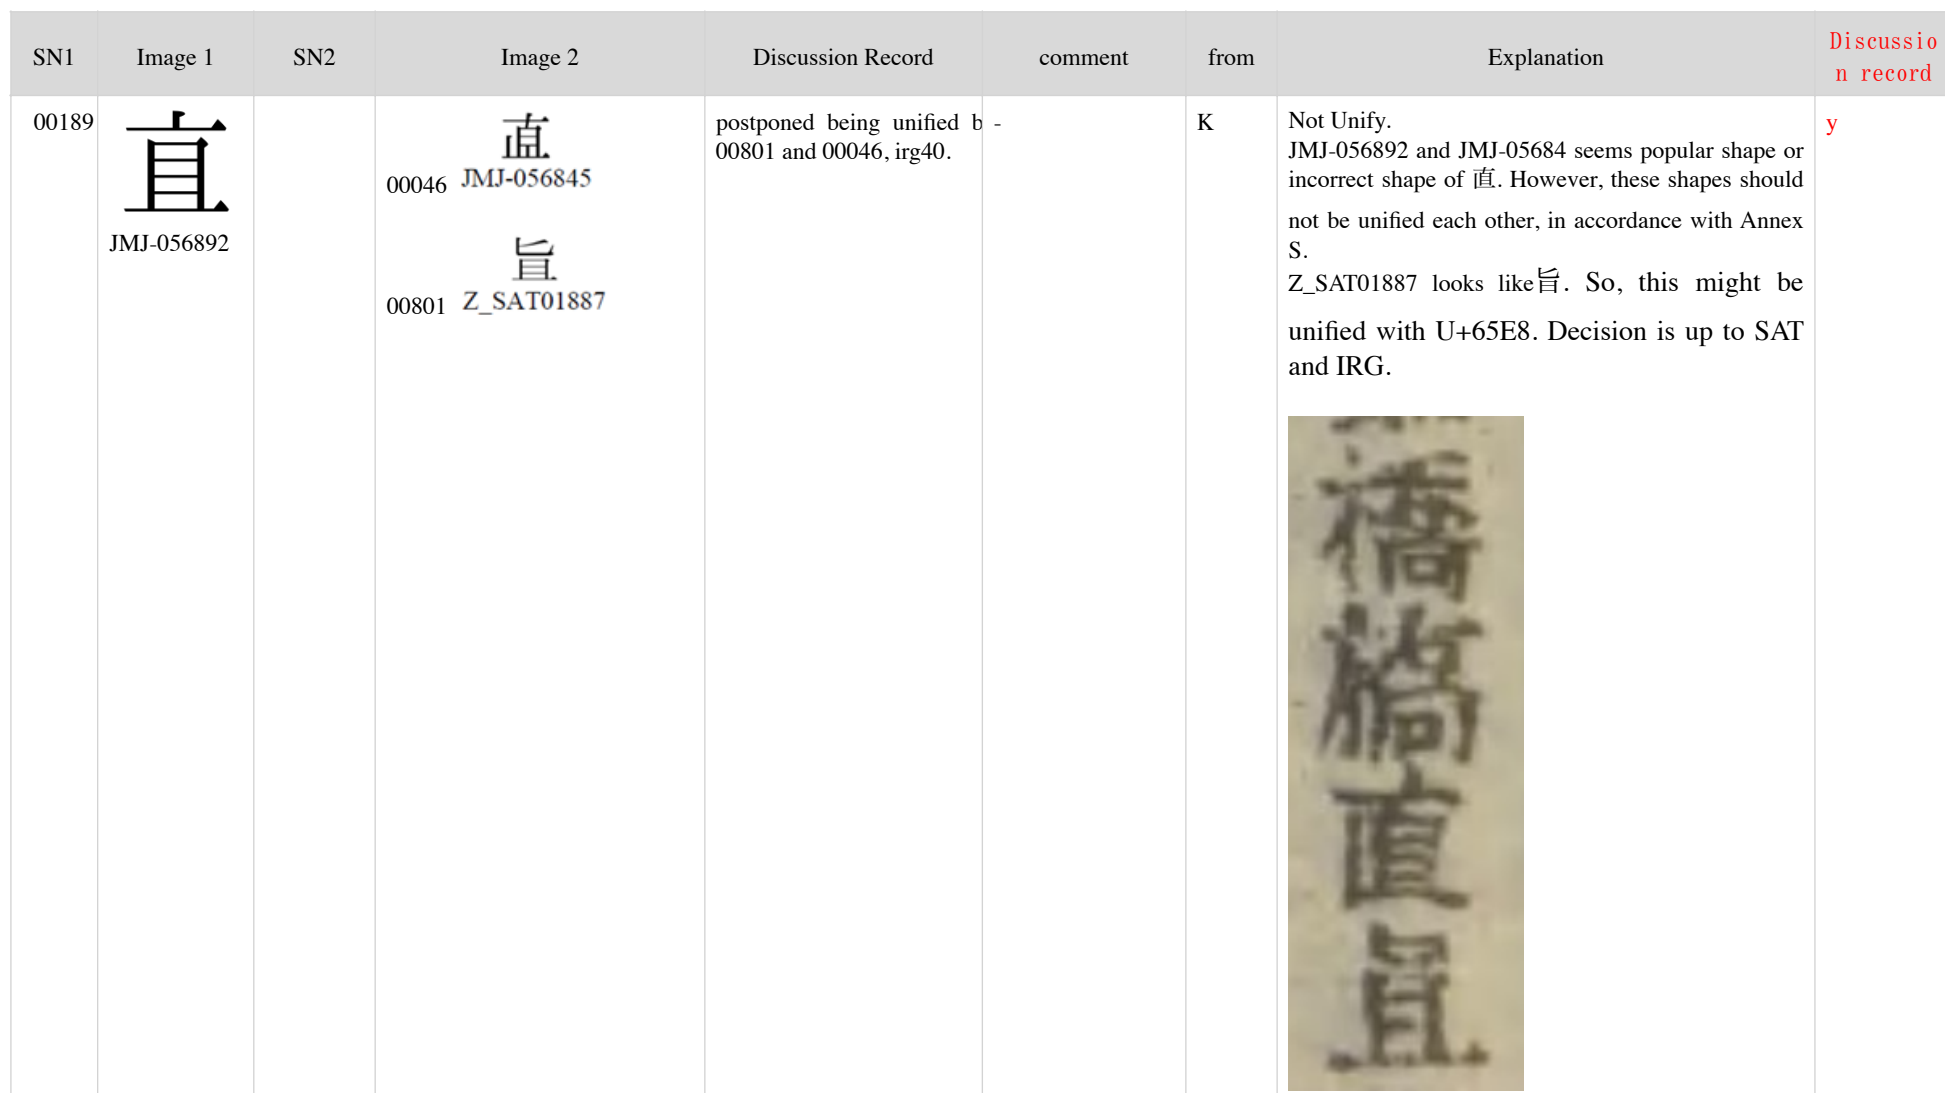 SN1 Image 1 SN2 Image 2 Discussion Record comment from Explanation Discussio
n record
00189
JMJ-056892
00046 JMJ-056845
00801 Z_SAT01887
postponed being unified b
00801 and 00046, irg40.
-
K
Not Unify.
JMJ-056892 and JMJ-05684 seems popular shape or
incorrect shape of 直. However, these shapes should
not be unified each other, in accordance with Annex
S.
Z_SAT01887 looks like旨. So, this might be
unified with U+65E8. Decision is up to SAT
and IRG.
y